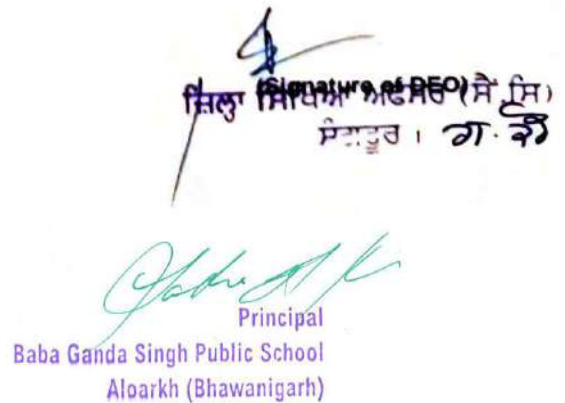 (Signature of DEO)
ਜ਼ਿਲ੍ਹਾ ਸਿੱਖਿਆ ਅਫਸਰ (ਸੈ.ਸਿ)
ਸੰਗਰੂਰ।
Principal
Baba Ganda Singh Public School
Aloarkh (Bhawanigarh)